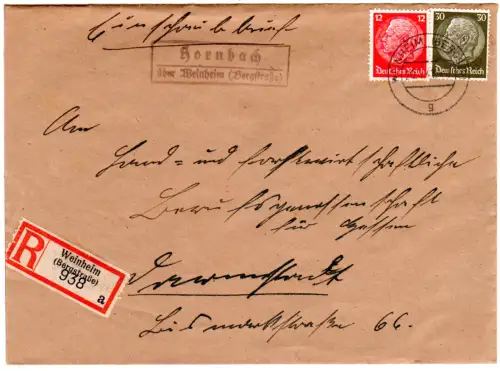 Einschreibebrief
Hornbach
über Weinheim (Bergstraße)
12
Deutsches Reich
30
Deutsches Reich
g
An
Land- und forstwirtschaftliche
Berufsgenossenschaft
für Hessen
Darmstadt
Bismarkstraße 66.
R
Weinheim
(Bergstraße)
938
a